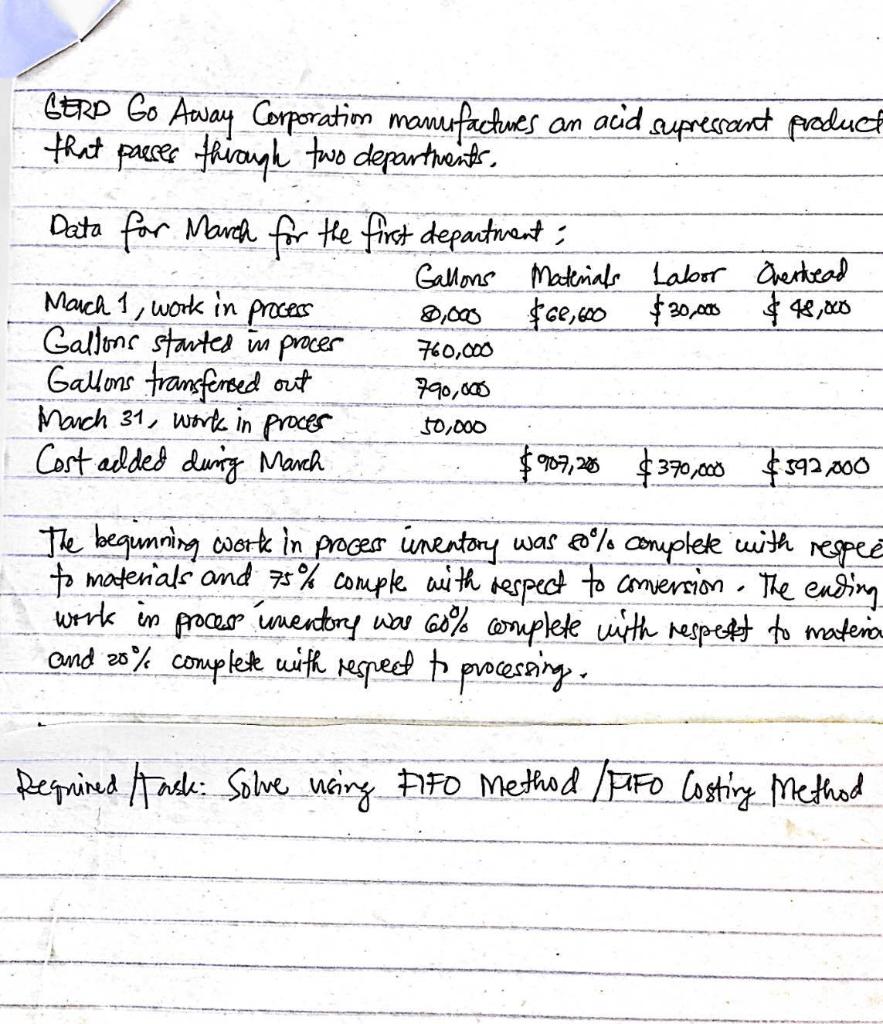 GERD Go Away Corporation manufactures an acid supressant product
that passes through two departments.
Data for March for the first department ;
Gallons Materials Labor Overhead
March 1, work in process 80,000 $68,600 $30,000 $48,000
Gallons started in proces 760,000
Gallons transferred out 790,000
March 31, work in proces 50,000
Cost added during March $907,200 $370,000 $592,000
The beginning work in process inventory was 80% complete with respec
to materials and 75% comple with respect to conversion. The ending
work in process inventory was 60% complete with respect to materia
and 20% complete with respect to processing.
Required/Task: Solve using FIFO Method/FIFO Costing Method